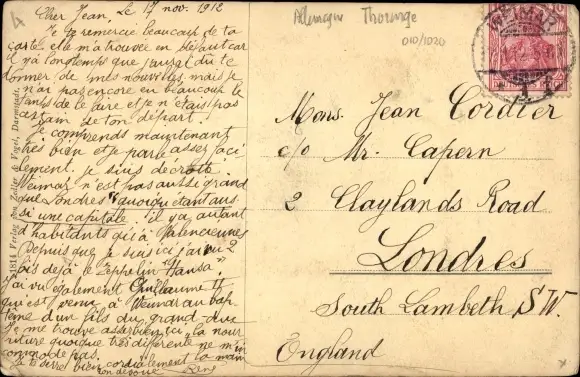 Cher Jean, Le 19 nov. 1912
Je te remercie beaucoup de ta
carte. elle m'a trouvée en défaut car
il y a longtemps que j'aurai du te
donner de mes nouvelles, mais je
n'ai pas encore eu beaucoup le
temps de le faire et je n'étais pas
de ton départ.
Je comprends maintenant
très bien et je parle assez faci
lement. je suis
Weimar n'est pas aussi grand
que Londres quoiqu'étant aus
si une capitale. il y a autant
d'habitants qu'à Valenciennes
Depuis que je suis ici j'ai vu 2
fois déjà le Zeppelin "Hansa".
j'ai vu également Guillaume II
qui est venu à Weimar au bap
tême d'un fils du grand duc
Je me trouve assez bien ici, la nour
riture quoique très différente ne m'in
commode pas.
Je te serre bien cordialement la main
ton dévoué René
Allemagne Thuringe
010/1020
WEIMAR
Mons. Jean Cordier
c/o Mr. Capern
2 Claylands Road
Londres
South Lambeth SW.
England